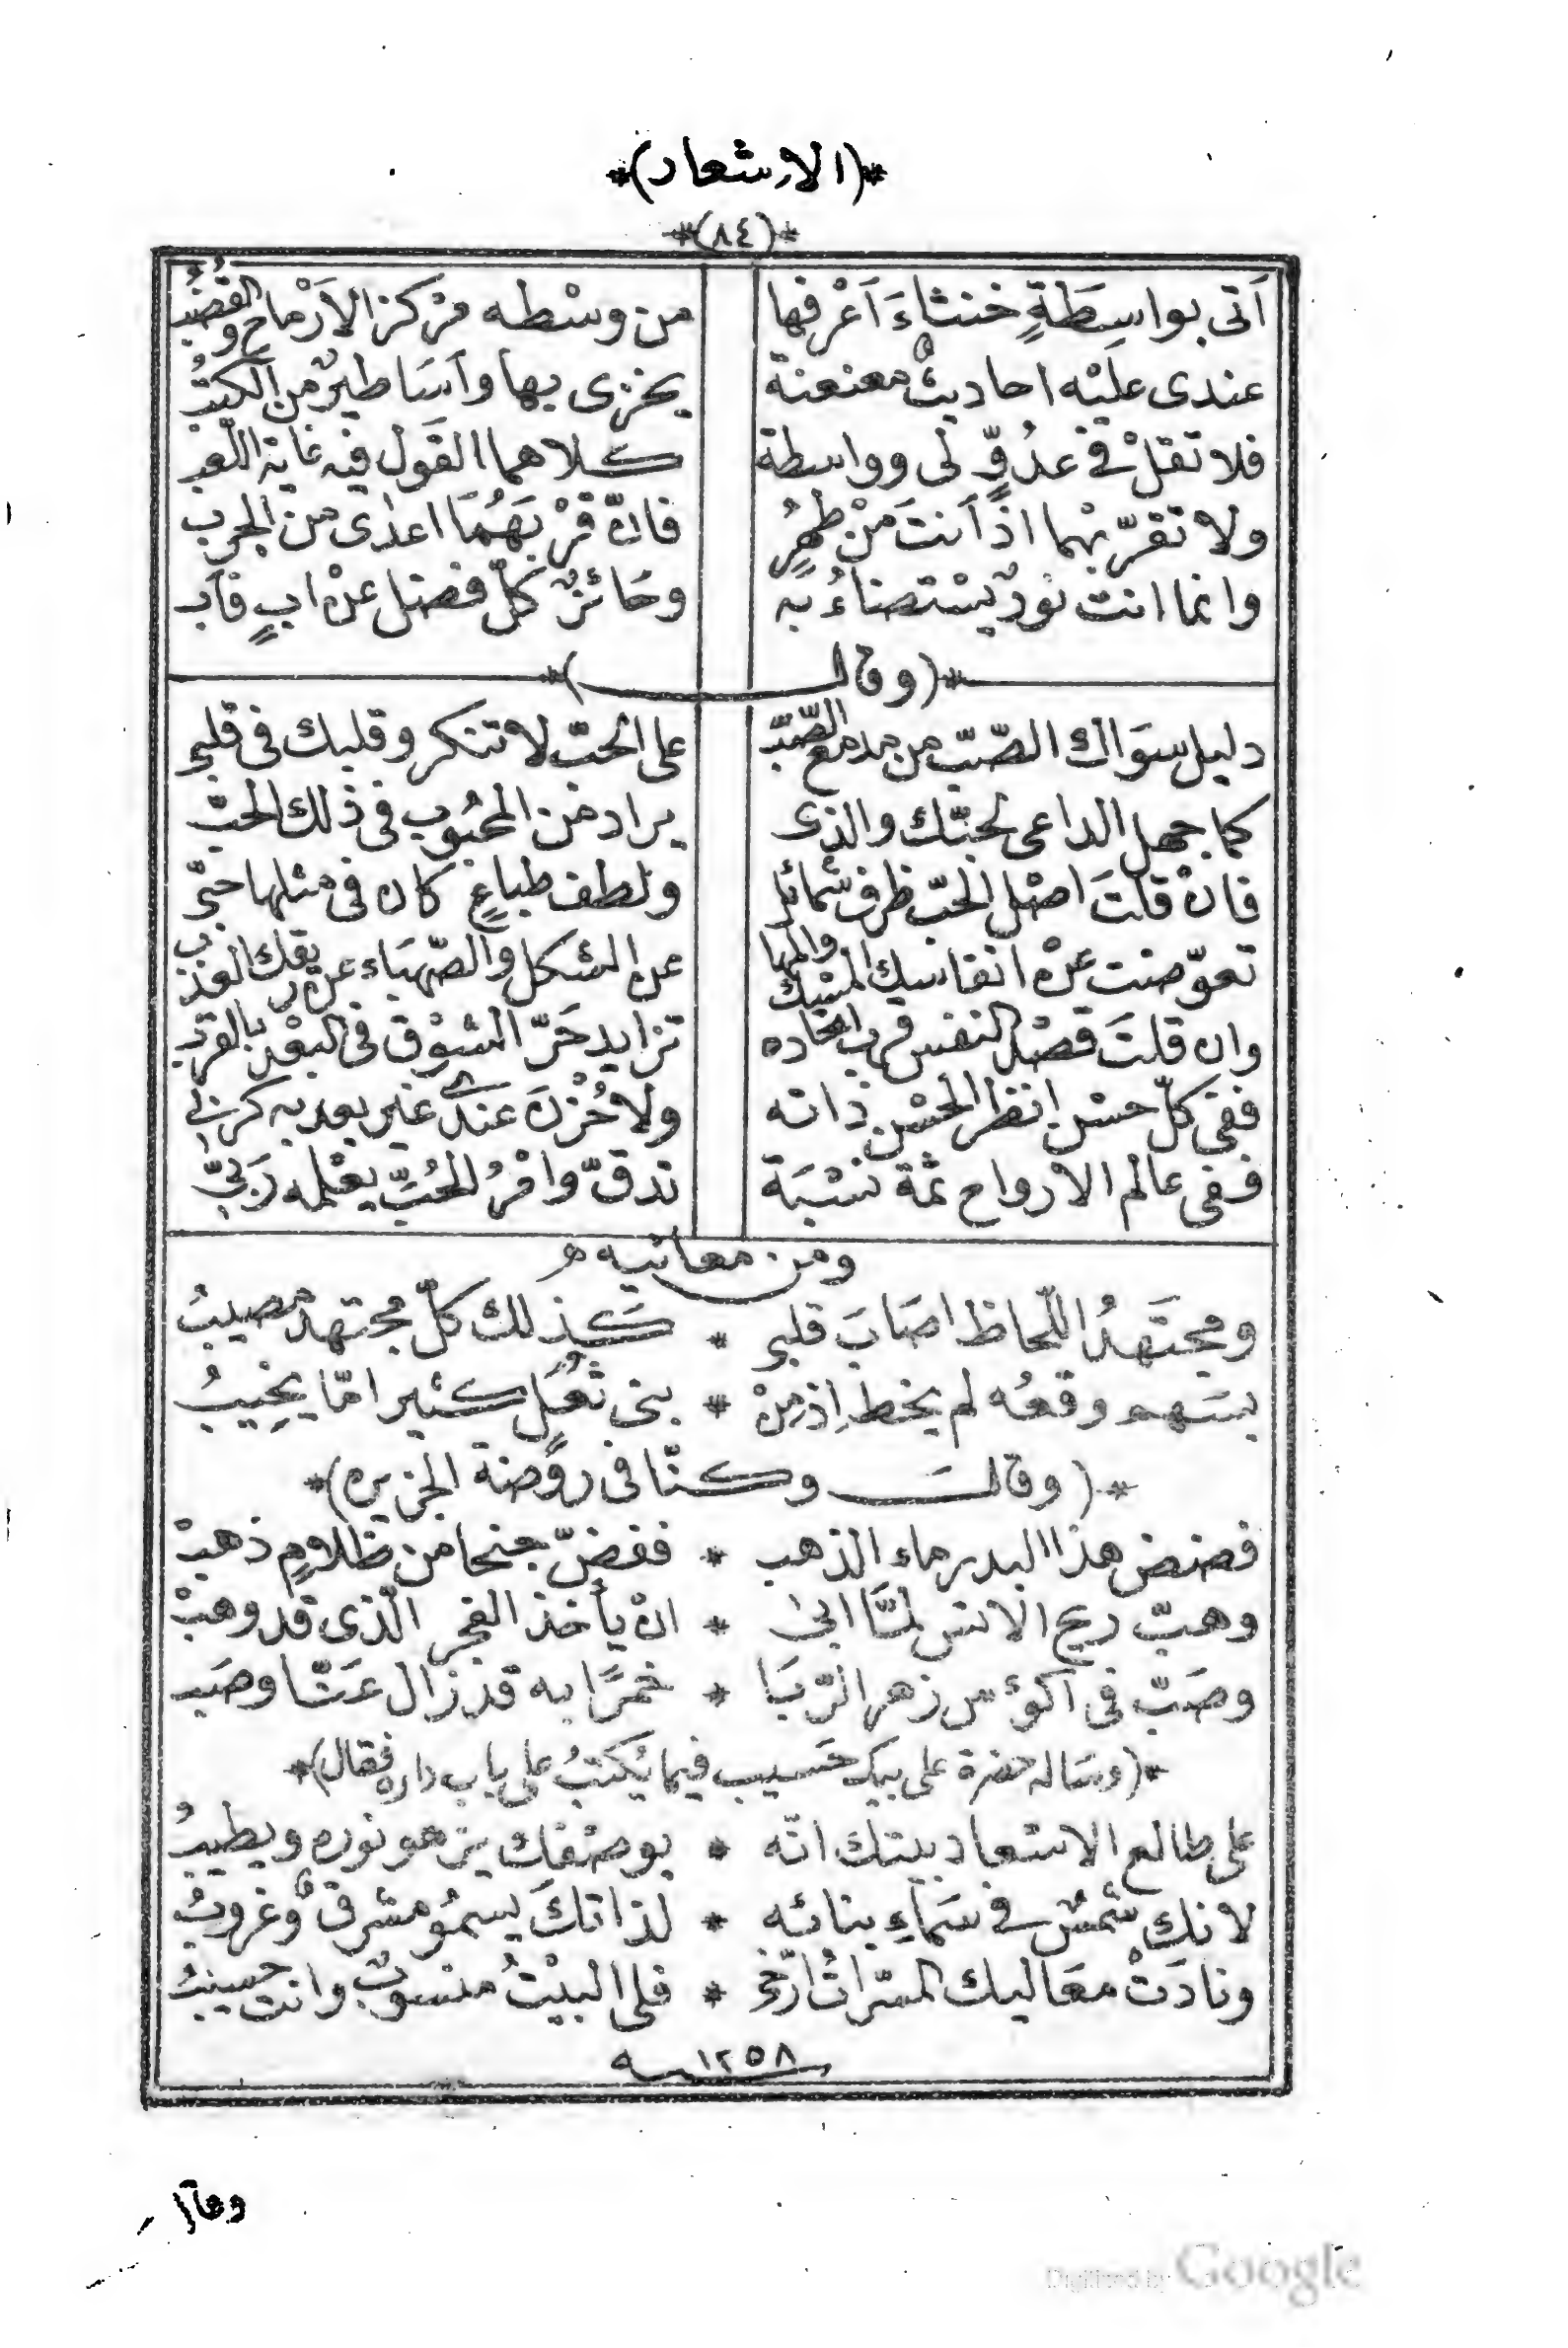 *(الاشعار)*
*(٨٤)*
اَتى بواسِطَةٍ خنثاءَ اَعْرفها من وسْطه مركز الاَرْماح والقضُبُ
عندى عليْه احاديثٌ معنعنة يخزى بها واَسَاطيرٌ من الكتبُ
فلا تقلْ في عدُوٍّ لى وواسطة كلاهما القَول فيه غاية اللعب
ولا تقرّبْهما اذ اَنتَ مَنْ طهُرٍ فانّ قرْبهَمُا اعدٰى من الجرب
وانما انت نورٌ يسْتضاءُ به وحَائزٌ كلّ فضل عن ابٍ فاَب
*(وقال)*
دليل سوَاك الصّبّ من مدمع الصّبّ على الحبّ لا تنكر وقلبك فى قلبى
كما جهل الداعى لحبّك والذى يراد من المحبُوب فى ذلك الحبّ
فانْ قلتَ اصْل الحبّ ظرف شمائل ولطف طباعٍ كان فى مثلها حبّى
تعوّضت عنْ انفاسك المسْك والمها عن الشكل والصّهبَاء عن ريقك العذب
وان قلتَ قصْد النفس قرب اتحاده تزايد حَرّ الشوْق فى البعْد بالقرب
ففى كلّ حسْن انظر الحسْن ذاته ولا حُزْنَ عندى غير بعد به كربى
ففى عالم الارواح ثمة نسْبَة تدقّ وامْرُ الحُبِّ يعْلمه رَبىّ
ومن معانيه
ومجتَهدُ اللّحاظ اصَابَ قلبى * كَذلك كلّ مجتهد مصيبُ
بسَهم وقعُه لم يخط اِذ مِنْ * بنى ثُعَلٍ كثير امّا يخِيبُ
*(وقالَ وكنّا فى روْضة الجزيره)*
فضض هذا البدر ماء الذهب * ففضّ جنحا من ظلامٍ ذهبْ
وهبّ ريح الانس لمَّا ابىٰ * انْ يأخذ الفجر الّذى قد وهبْ
وصَبّ فى اَكؤس زهر الرّبَا * خمرًا به قد زال عَنّا وصَب
*(وسَاله حضرة على بيك حَسيب فيما يُكتبُ على باب داره فقال)*
على طالع الاسْعاد بيتك انّه * بوصْفك يزهو نوره ويطيبُ
لانك شمْسٌ فى سَماءِ بنائه * لذاتكَ يسمُو مشرقٌ وغروبُ
ونادَتْ معَاليك المسّراتُ ارّخى * فلى البيْتُ منسوبٌ وانت حسيبُ
١٢٥٨ سنه